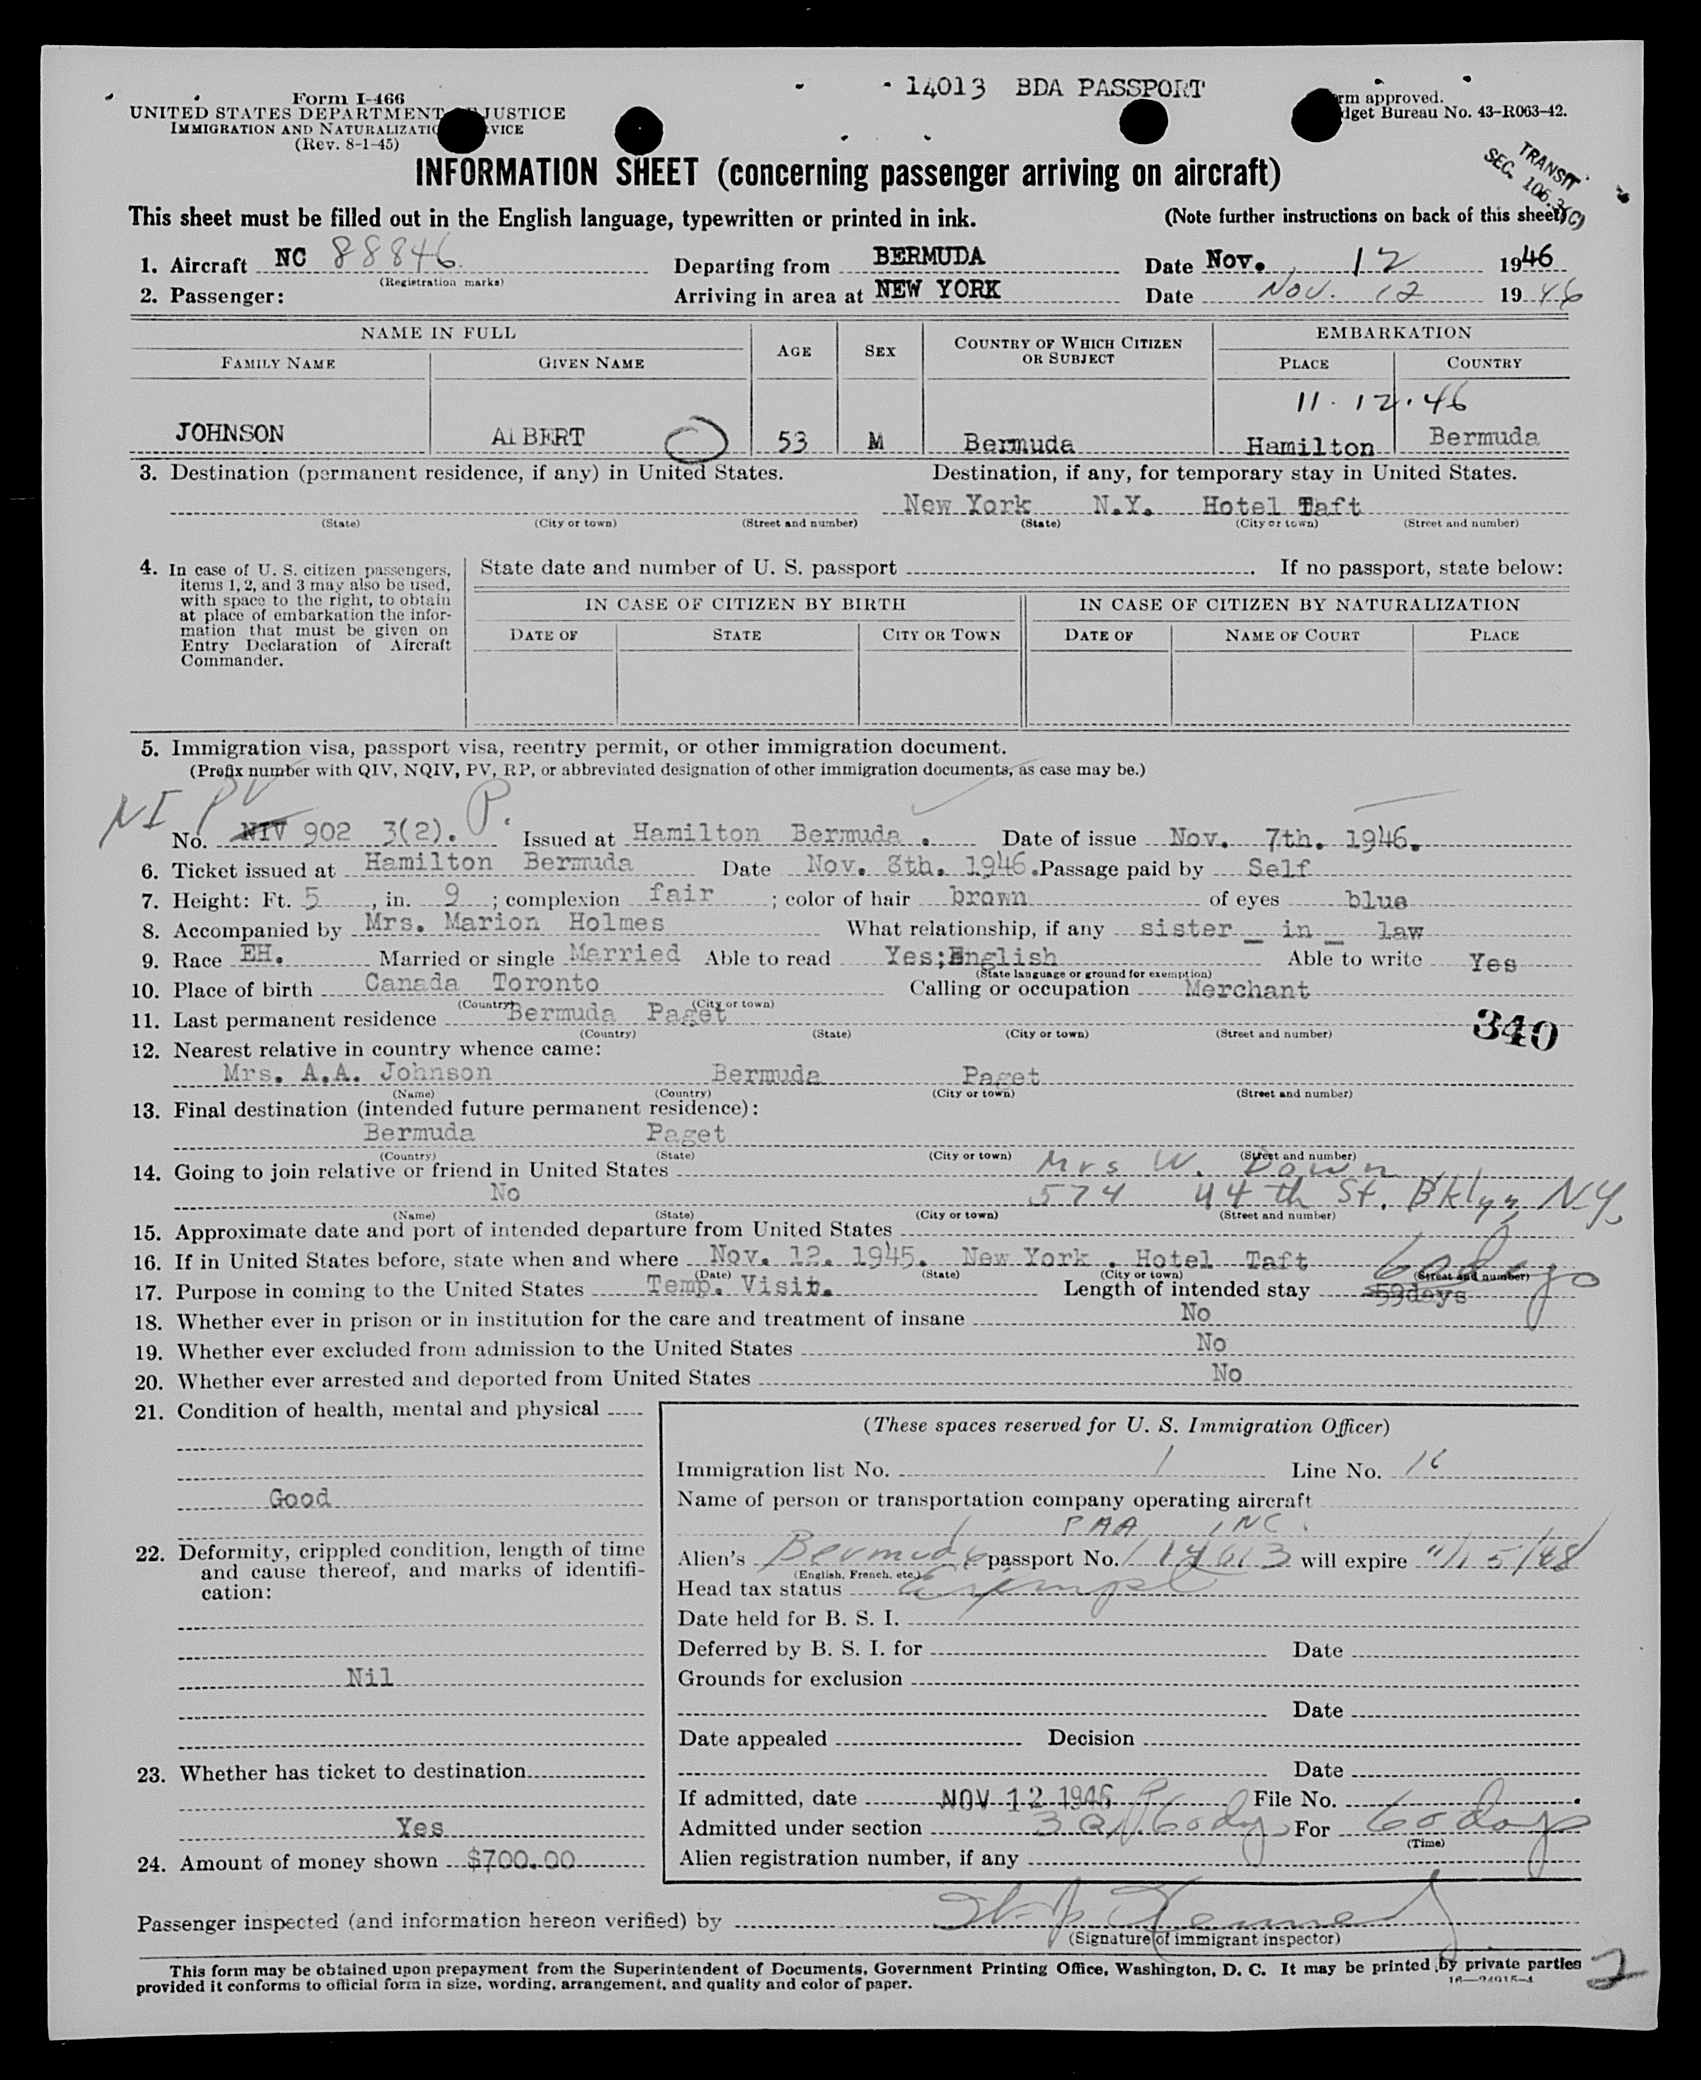 14013 BDA PASSPORT
Form I-466
UNITED STATES DEPARTMENT JUSTICE
IMMIGRATION AND NATURALIZATION
(Rev. 8-1-45)
approved.
Bureau No. 43-R063-42.
TRANSIT
SEC. 106.3(C)
INFORMATION SHEET (concerning passenger arriving on aircraft)
This sheet must be filled out in the English language, typewritten or printed in ink. (Note further instructions on back of this sheet)
1. Aircraft NC 88846 Departing from BERMUDA Date Nov. 12 1946
(Registration marks)
2. Passenger: Arriving in area at NEW YORK Date Nov. 12 1946
NAME IN FULL AGE SEX COUNTRY OF WHICH CITIZEN OR SUBJECT EMBARKATION
FAMILY NAME GIVEN NAME PLACE COUNTRY
11.12.46
JOHNSON ALBERT 53 M Bermuda Hamilton Bermuda
3. Destination (permanent residence, if any) in United States. Destination, if any, for temporary stay in United States.
New York N.Y. Hotel Taft
(State) (City or town) (Street and number) (State) (City or town) (Street and number)
4. In case of U. S. citizen passengers, items 1, 2, and 3 may also be used, with space to the right, to obtain at place of embarkation the information that must be given on Entry Declaration of Aircraft Commander.
State date and number of U. S. passport . If no passport, state below:
IN CASE OF CITIZEN BY BIRTH IN CASE OF CITIZEN BY NATURALIZATION
DATE OF STATE CITY OR TOWN DATE OF NAME OF COURT PLACE
5. Immigration visa, passport visa, reentry permit, or other immigration document.
(Prefix number with QIV, NQIV, PV, RP, or abbreviated designation of other immigration documents, as case may be.)
NI PV P.
No. NIV 902 3(2). Issued at Hamilton Bermuda . Date of issue Nov. 7th. 1946.
6. Ticket issued at Hamilton Bermuda Date Nov. 8th. 1946. Passage paid by Self
7. Height: Ft. 5, in. 9; complexion fair; color of hair brown of eyes blue
8. Accompanied by Mrs. Marion Holmes What relationship, if any sister _ in _ law
9. Race EH. Married or single Married Able to read Yes;English Able to write Yes
(State language or ground for exemption)
10. Place of birth Canada Toronto Calling or occupation Merchant
(Country) (City or town)
11. Last permanent residence Bermuda Paget
(Country) (State) (City or town) (Street and number)
340
12. Nearest relative in country whence came:
Mrs. A.A. Johnson Bermuda Paget
(Name) (Country) (City or town) (Street and number)
13. Final destination (intended future permanent residence):
Bermuda Paget
(Country) (State) (City or town) (Street and number)
14. Going to join relative or friend in United States Mrs W. Down
No 574 44th St. Bklyn, N.Y.
(Name) (State) (City or town) (Street and number)
15. Approximate date and port of intended departure from United States
16. If in United States before, state when and where Nov. 12. 1945. New York . Hotel Taft
(Date) (State) (City or town) (Street and number)
60 days
17. Purpose in coming to the United States Temp. Visit. Length of intended stay 59days
18. Whether ever in prison or in institution for the care and treatment of insane No
19. Whether ever excluded from admission to the United States No
20. Whether ever arrested and deported from United States No
21. Condition of health, mental and physical
Good
22. Deformity, crippled condition, length of time and cause thereof, and marks of identification:
Nil
23. Whether has ticket to destination
Yes
24. Amount of money shown $700.00
(These spaces reserved for U. S. Immigration Officer)
Immigration list No. 1 Line No. 16
Name of person or transportation company operating aircraft
PAA INC.
Alien's Bermuda passport No. 14013 will expire 11/5/48
(English, French, etc.)
Head tax status Exempt
Date held for B. S. I.
Deferred by B. S. I. for Date
Grounds for exclusion
Date
Date appealed Decision
Date
If admitted, date NOV 12 1946 File No.
Admitted under section 3(2) 60 days For 60 days
(Time)
Alien registration number, if any
Passenger inspected (and information hereon verified) by
(Signature of immigrant inspector)
This form may be obtained upon prepayment from the Superintendent of Documents, Government Printing Office, Washington, D. C. It may be printed by private parties
provided it conforms to official form in size, wording, arrangement, and quality and color of paper.
16—24915-1
2